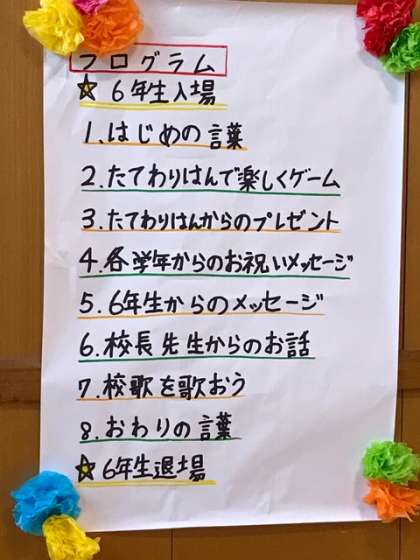 プログラム
☆ 6年生入場
1. はじめの言葉
2. たてわりはんで楽しくゲーム
3. たてわりはんからのプレゼント
4. 各学年からのお祝いメッセージ
5. 6年生からのメッセージ
6. 校長先生からのお話
7. 校歌を歌おう
8. おわりの言葉
☆ 6年生退場